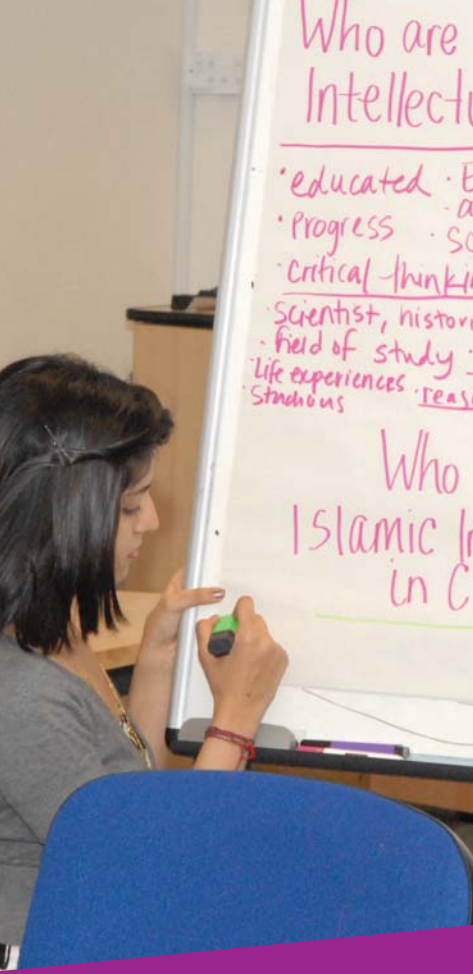 Who are
Intellectu
•educated • E
• a
•Progress • sc
•critical thinkin
•Scientist, histori
•field of study
•Life experiences •reas
•Studious
Who
Islamic In
in C